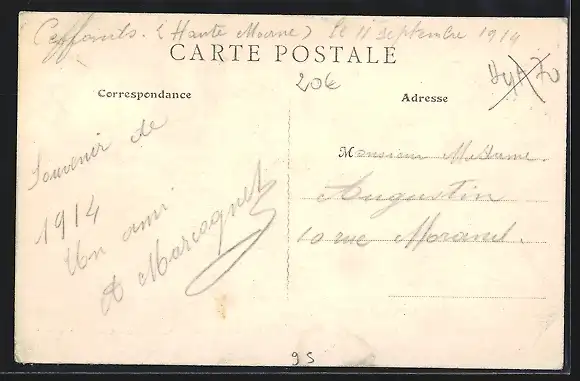 Ceffonds. (Haute Marne) le 11 septembre 1914
CARTE POSTALE
20€
Correspondance
Adresse
Souvenir de
1914
Un ami
A Marcaquet
M onsieur Madame.
Augustin
10 rue Morand.
95